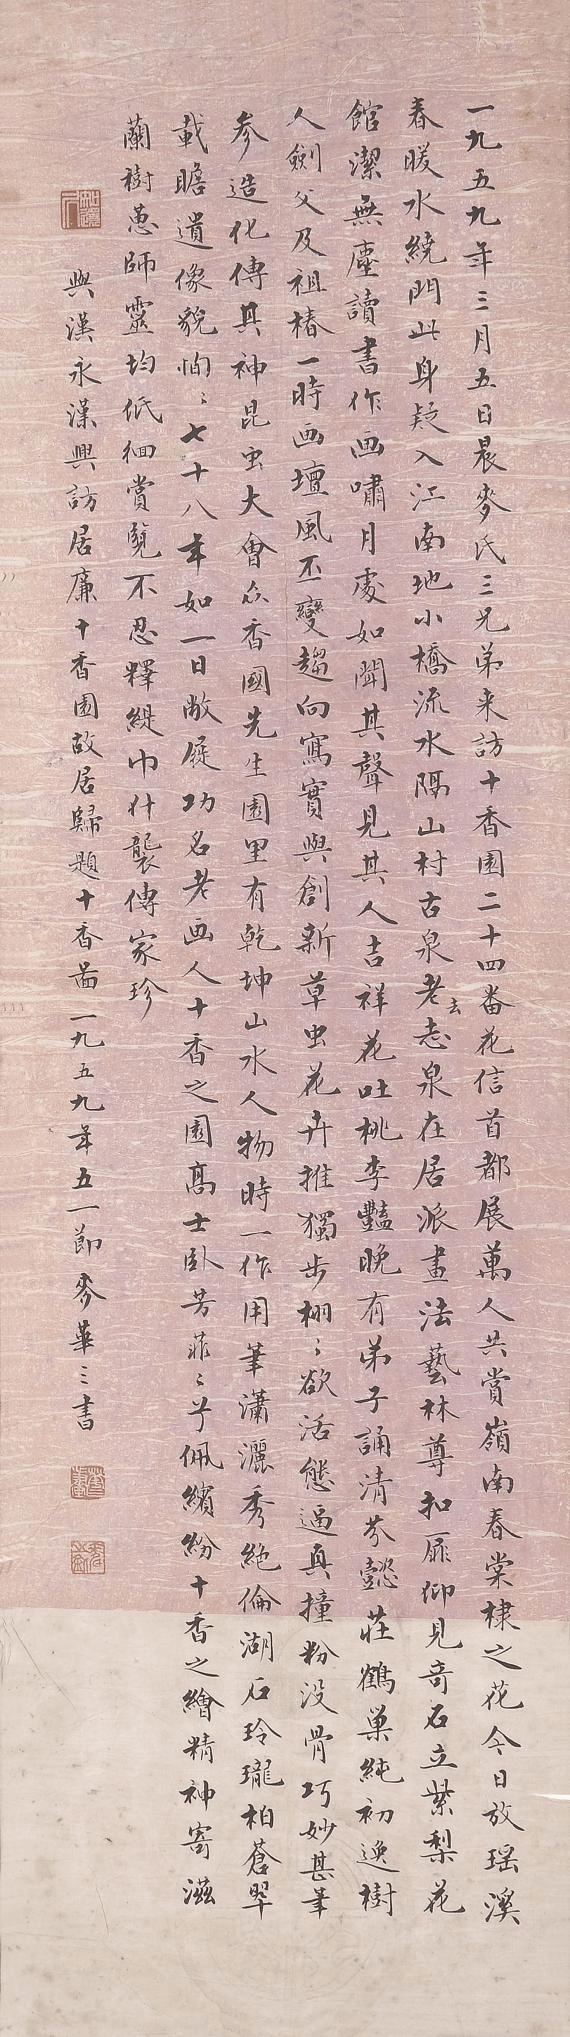 一九五九年三月五日晨麥氏三兄弟来訪十香園二十四番花信首都展萬人共賞嶺南春棠棣之花今日放瑶溪
春暖水繞門此身疑入江南地小橋流水隔山村古泉老去志泉在居派畫法藝林尊扣扉仰見奇石立紫梨花
館潔無塵讀書作画嘯月處如聞其聲見其人吉祥花吐桃李豔晚有弟子誦清芬懿莊鶴巢純初逸樹
人劍父及祖椿一時画壇風丕變趨向寫實與創新草虫花卉推獨步栩〻欲活態逼真撞粉没骨巧妙甚筆
参造化傳其神昆虫大會众香國先生園里有乾坤山水人物時一作用筆瀟灑秀絶倫湖石玲瓏柏蒼翠
載瞻遺像貌恂〻七十八年如一日敝屣功名老画人十香之園高士卧芳菲〻兮佩繽紛十香之繪精神寄滋
蘭樹蕙師靈均低徊賞覽不忍釋緹巾什襲傳家珍
與漢永漢興訪居廉十香園故居歸題十香圖一九五九年五一節麥華三書